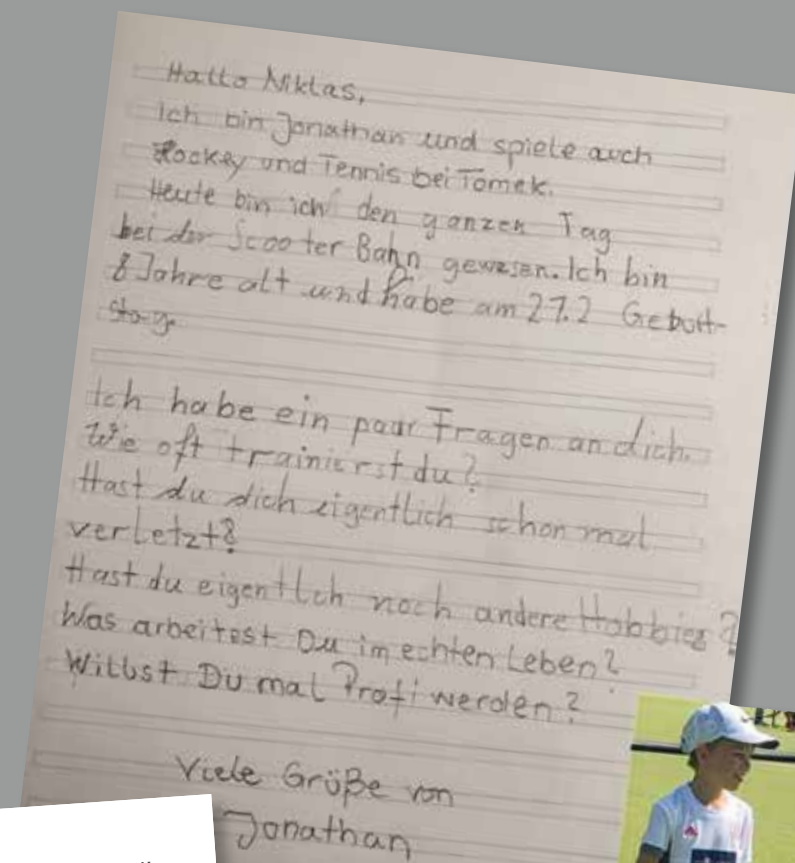 Hallo Niklas,
Ich bin Jonathan und spiele auch
Hockey und Tennis bei Tomek.
Heute bin ich den ganzen Tag
bei der Scooter Bahn gewesen. Ich bin
8 Jahre alt und habe am 27.2 Geburt-
stag.
Ich habe ein paar Fragen an dich.
Wie oft trainierst du?
Hast du dich eigentlich schon mal
verletzt?
Hast du eigentlch noch andere Hobbies?
Was arbeitest Du im echten Leben?
Willst Du mal Profi werden?
Viele Grüße von
Jonathan